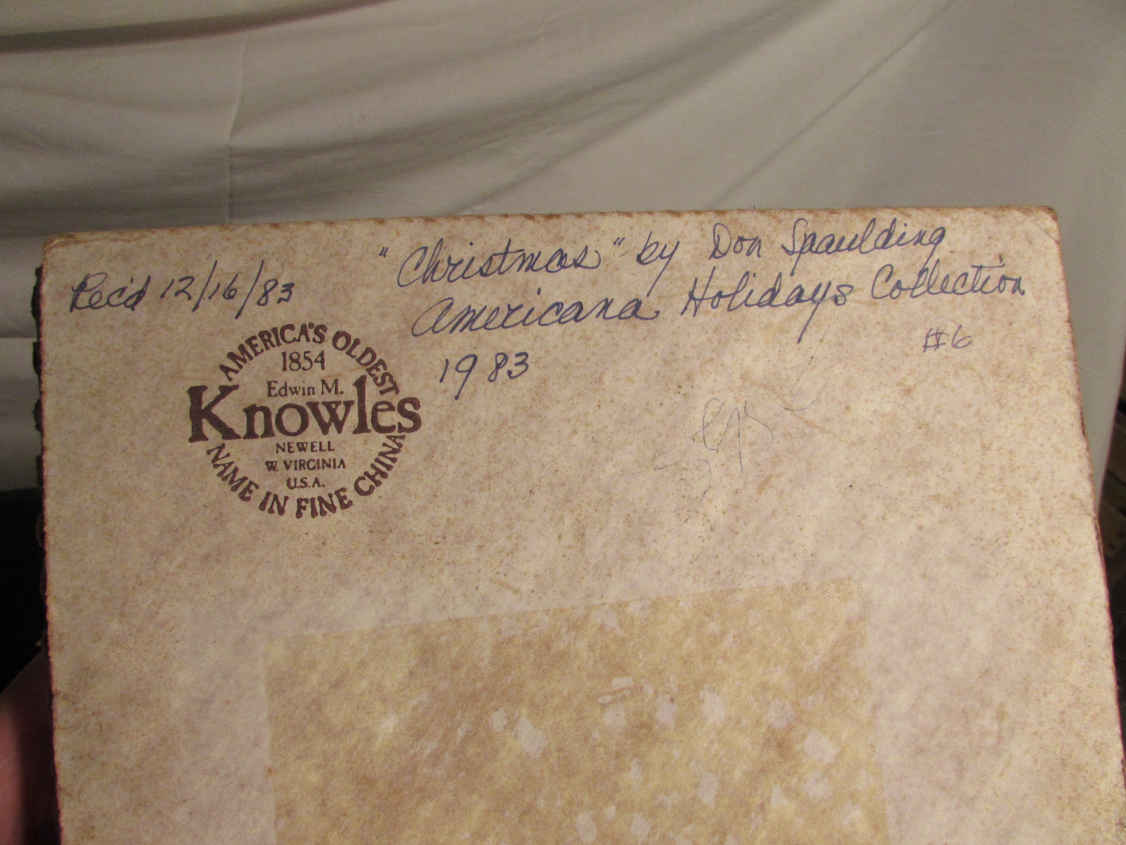 "Christmas" by Don Spaulding
Rec'd 12/16/83
Americana Holidays Collection
1983
#6
AMERICA'S OLDEST
1854
Edwin M.
Knowles
NEWELL
W. VIRGINIA
U.S.A.
NAME IN FINE CHINA